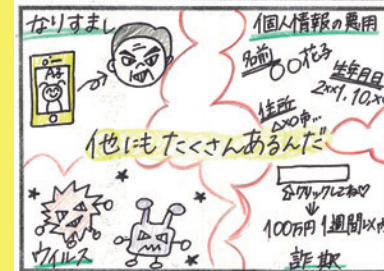 なりすまし
Aよ
個人情報の悪用
名前
○○花子
生年月日
2××1.10.×
住所
△×○市…
他にもたくさんあるんだ
ウイルス
クリックしてね♡
100万円 1週間以内
詐欺